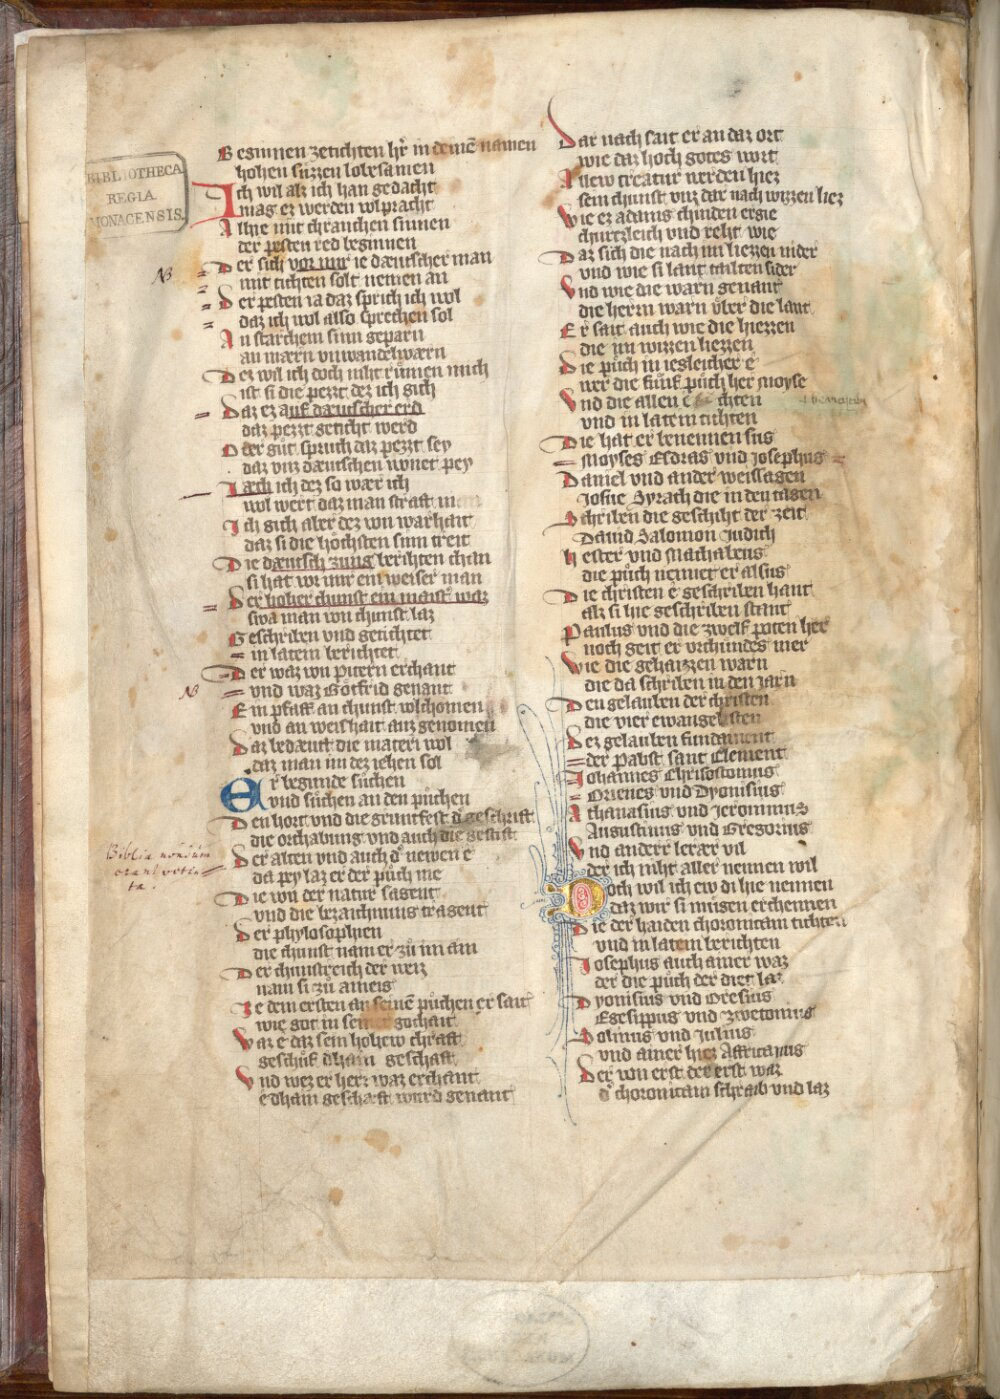 BIBLIOTHECA
REGIA
MONACENSIS.
Besinnen zetichten hr̄ in deinē namen
hohen süzzen lobesamen
Ich wil als ich han gedacht
mag ez werden volpracht
Alhie mit chranchen sinnen
der pesten red beginnen
Der sich vor mir ie dæutscher man
NB
mit tichten solt nemen an
Der pesten ia daz sprich ich wol
daz ich wol also sprechen sol
An starchem sinn geparn
an mærn unwandelwærn
Dez wil ich doch niht rümen mich
ist si die pezzt dez ich gich
Daz ez auf dæutscher erd
daz pezzt geticht werd
Oder güt spruch daz pezzt sey
daz vnz dæutschen wonet pey
Iæch ich dez so wær ich
wol wert daz man straft
Ich gich aber dez von warhait
daz si die höchsten sinn treit
Die dæutsch zung berihten chan
si hat vor mir ein weiser man
Der hoher chunst ein maist̄ waz
swa man von chunst laz
Geschriben vnd getichtet
in latein berichtet
Der waz von pitern erchant
NB
vnd waz Gotfrid genant
Ein pfaff an chunst volchomen
vnd an weishait auz genomen
Daz bedæut die materi wol
daz man im dez iehen sol
Er begunde süchen
vnd süchen an den püchen
Den hort vnd die gruntfest d̄ geschrift
die orthabung vnd auch die gestift
Biblia nondum
erant versi-
ta.
Der alten vnd auch d̄ newen e
da pey laz er der püch me
Die von der natur sagent
vnd die bezaichnung tragent
Der phylosophien
die chunst nam er zü im ain
Der chunstreich der weiz
nam si zü ameis
Ze dem ersten an seinē püchen er sait
wie got in seiner gothait
Waz e daz sein hohew chraft
geschüf dhain geschaft
Vnd wez er herr waz erchant
e dhain geschæft wurd genant
Dar nach sait er an daz ort
wie daz hoch gotes wort
Allew creatur werden hiez
sein chunst vnz dar nach wizzen liez
Wie ez adams chinden ergie
churtzleich vnd reht wie
Daz sich die nach im liezzen nider
vnd wie si lant tailten sider
Vnd wie die warn genant
die herrn warn vber die lant
Er sait auch wie die hiezzen
die im wizzen liezzen
Die püch in iegleicher e
wer die fünf püch her Moyse
Vnd die allen e chten
vnd in latein tichten
Die hat er benennen sus
Moyses Esdras vnd Josephus
Daniel vnd ander weissagen
Josue Syrach die in den tagen
Schriben die geschiht der zeit
Dauid Salomon Judich
Hester vnd Machabeus
die püch nennet er alsus
Die christen e geschriben hant
alz si hie geschriben stant
Paulus vnd die zwelf poten her
noch geit er vrchundes mer
Wie die gehaizzen warn
die da schriben in den iarn
Den gelauben der christen
die vier ewangelisten
Dez gelauben fundament
der Pabst sant Clement
Johannes Chrisostomus
Orienes vnd Dyonisius
Athanasius vnd Jeronimus
Augustinus vnd Gregorius
Vnd anderr lerær vil
der ich niht aller nennen wil
Doch wil ich ew di hie nennen
daz wir si mügen erchennen
Die der haiden choronicam tichten
vnd in latein berichten
Josephus auch ainer waz
der die püch der diet laz
Dyonisius vnd Oresius
Egesippus vnd Zwetonius
Solinus vnd Julius
vnd ainer hiez Affricanus
Der von erst der erst waz
d̄ choronicam schraib vnd laz